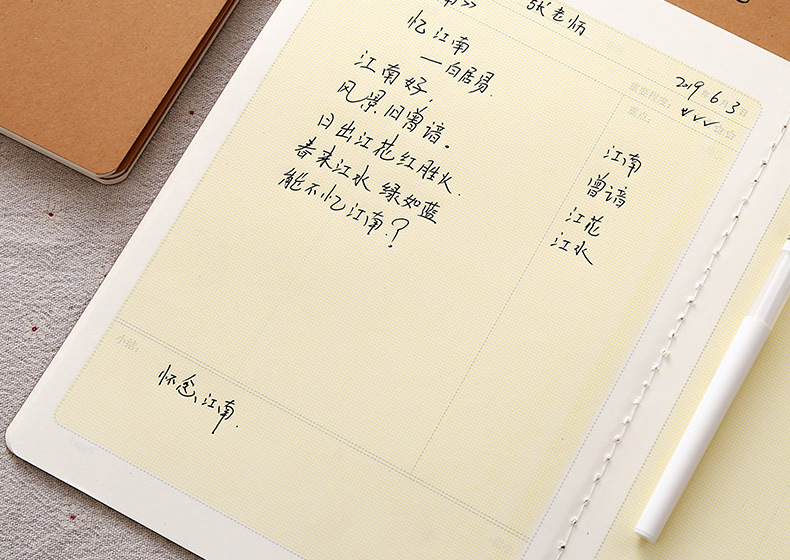 张老师
忆江南
——白居易.
江南好,
风景旧曾谙。
日出江花红胜火.
春来江水绿如蓝
能不忆江南.?
2019年6月3日
重要程度: ✓✓✓
重点:
江南
曾谙
江花
江水
小结:
怀念江南.